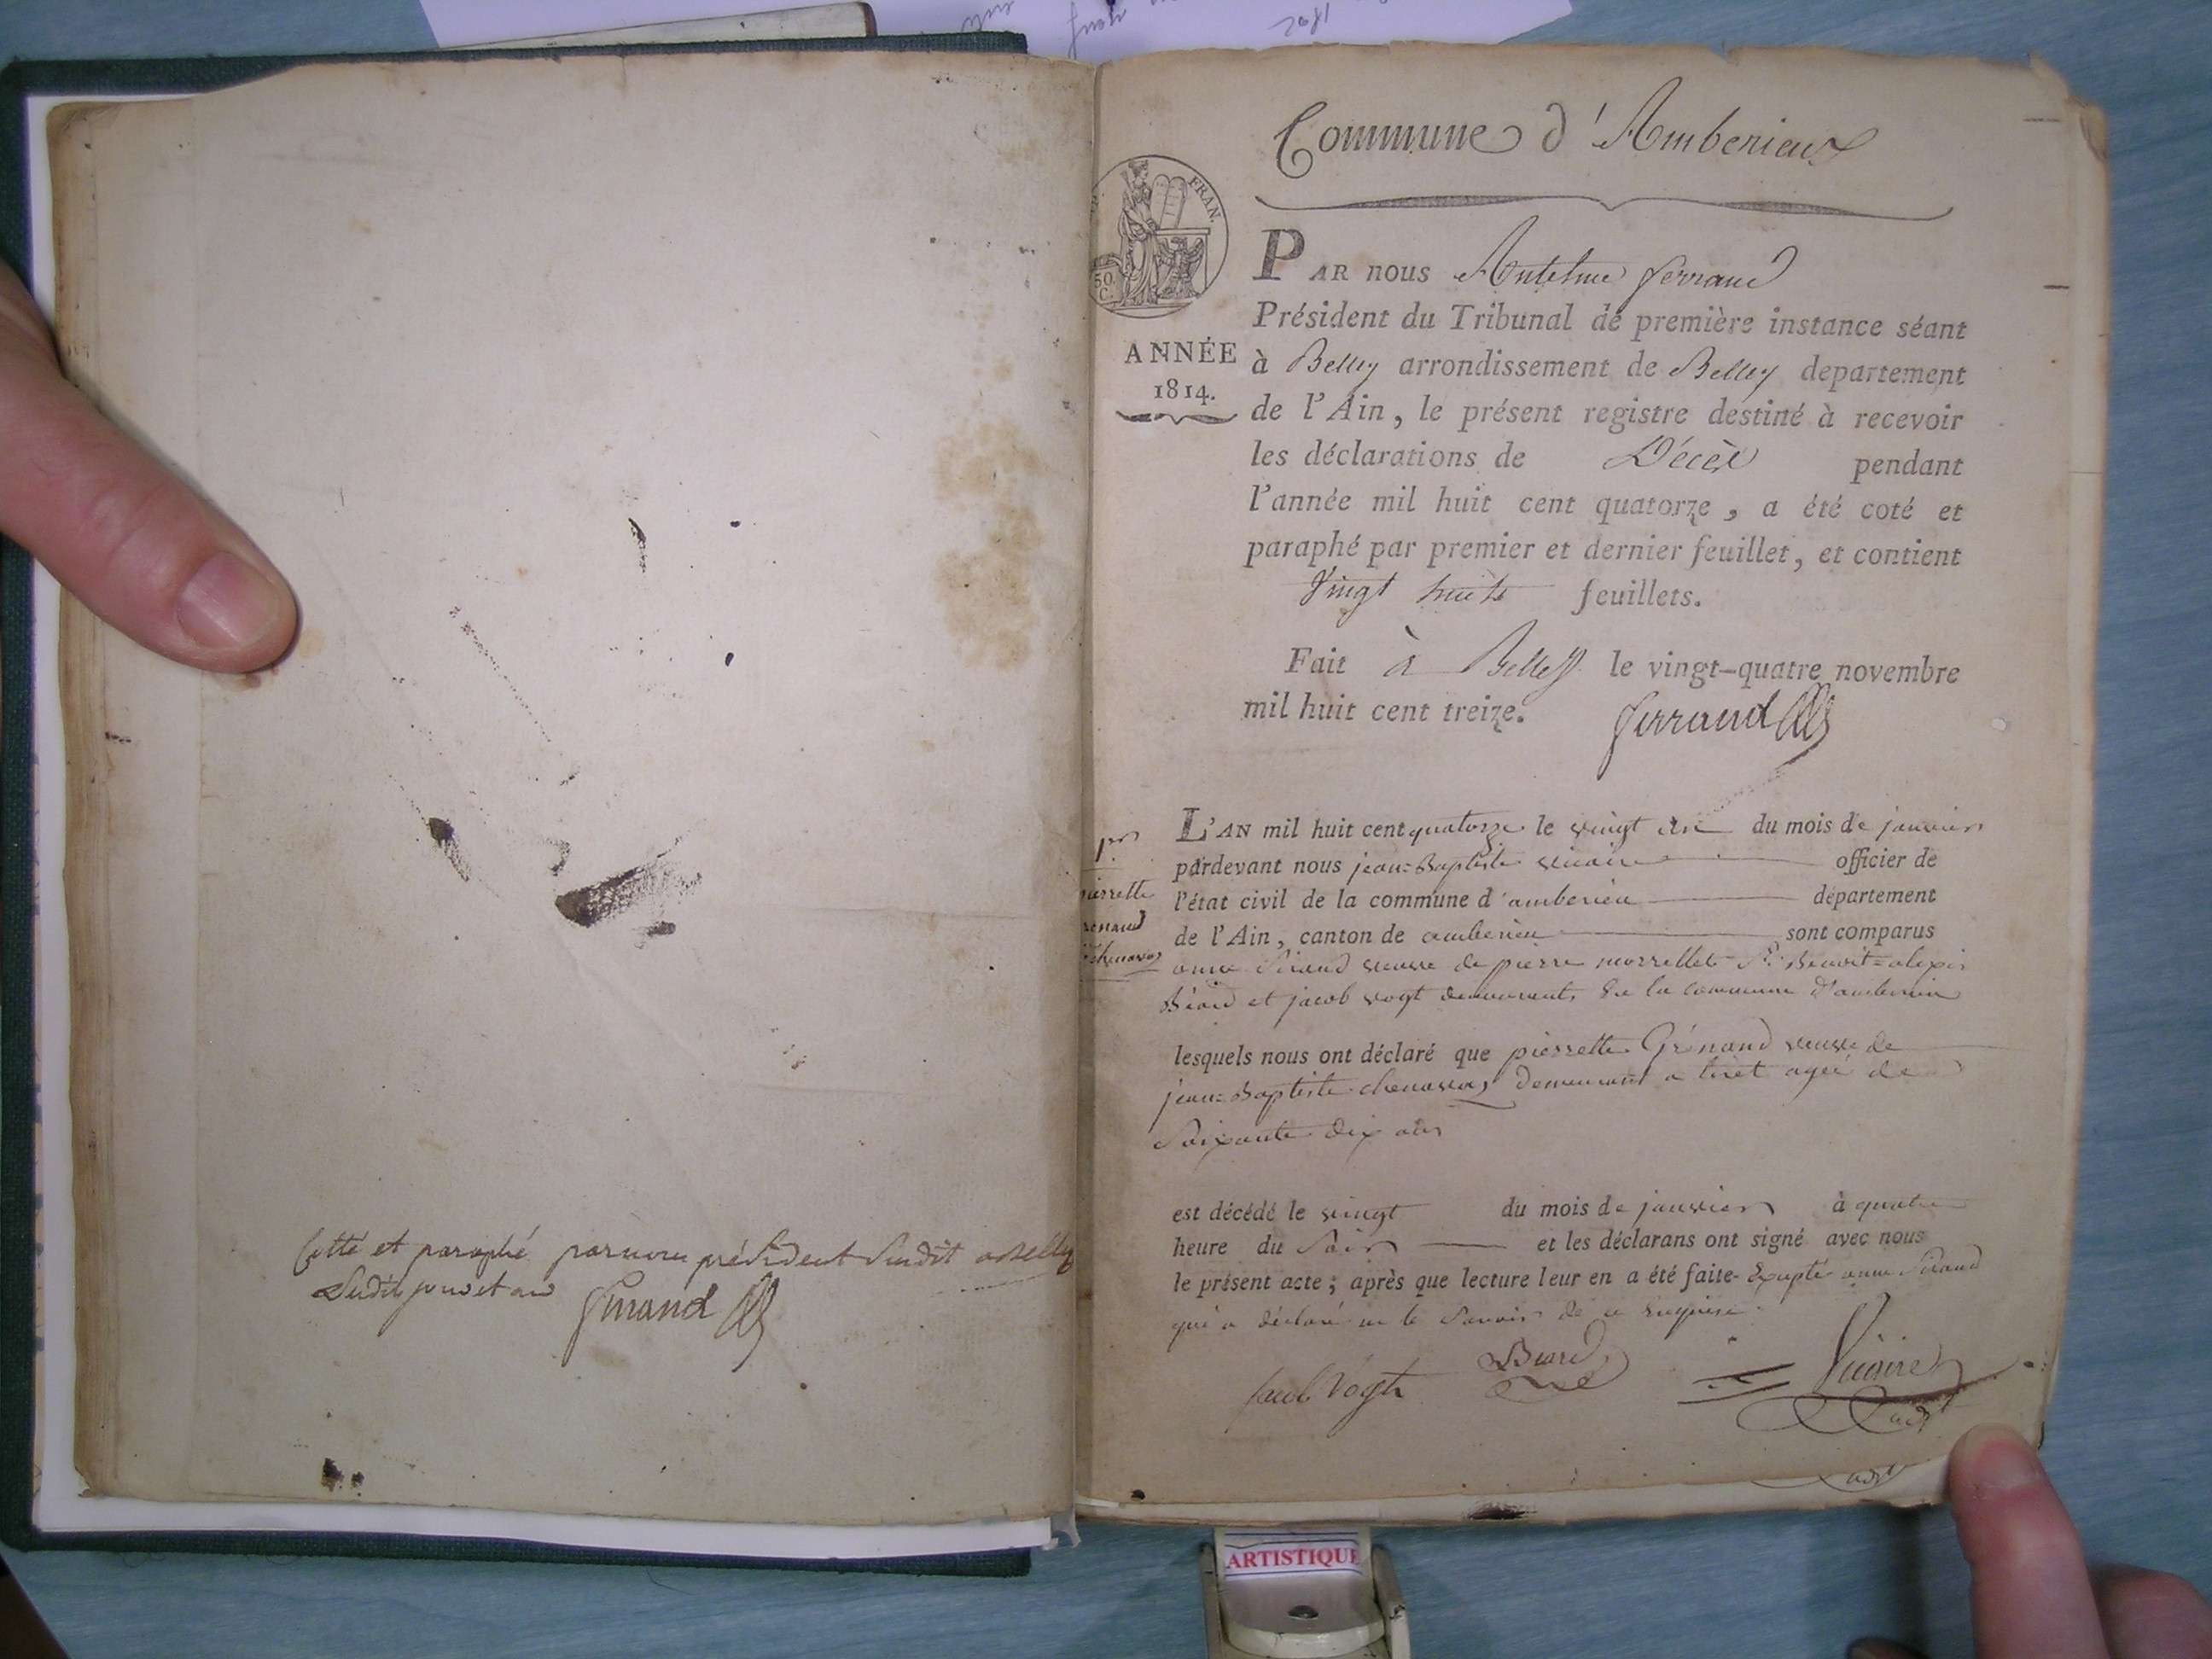 Cotté et paraphé par nous président susdit à Belley
susdit jour et an
Ferrand
Commune d'Ambenieux
FRAN.
50
C.
ANNÉE
1814.
PAR nous Antelme ferrand
Président du Tribunal de première instance séant
à Belley arrondissement de Belley departement
de l'Ain, le présent registre destiné à recevoir
les déclarations de Décès pendant
l'année mil huit cent quatorze, a été coté et
paraphé par premier et dernier feuillet, et contient
Vingt huit feuillets.
Fait à Belley le vingt-quatre novembre
mil huit cent treize.
ferrand
L'AN mil huit cent quatorze le vingt un du mois de janvier
pardevant nous jean=Baptiste vicaire officier de
l'état civil de la commune d'amberieu département
de l'Ain, canton de amberieu sont comparus
anne Sirand veuve de pierre morrellet Sr. Benoit=alexis
Béard et jacob vogt demeurants de la commune d'amberieu
lesquels nous ont déclaré que pierrette Grénand veuve de
jean=Baptiste chenavas demeurant a tiret agée de
Soixante dix ans
est décédé le vingt du mois de janvier à quatre
heure du Soir et les déclarans ont signé avec nous
le présent acte; après que lecture leur en a été faite Exepté anne Sirand
qui a déclaré ne le Savoir de ce enquise
Vogt
Béard
Vicaire
adjt
ARTISTIQUE